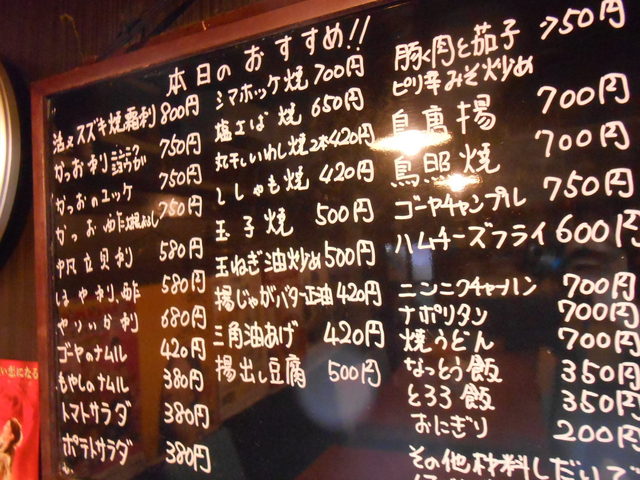 本日のおすすめ!!
活〆スズキ焼霜利 800円
かつお刺 ニンニク ミョウガ 750円
かつおのユッケ 750円
かつお 750円
帆立貝利 580円
ほや刺、酢 580円
やりいか刺 680円
ゴーヤのナムル 420円
もやしのナムル 380円
トマトサラダ 380円
ポテトサラダ 380円
シマホッケ焼 700円
塩さば焼 650円
丸干しいわし焼2本 420円
ししゃも焼 420円
玉子焼 500円
玉ねぎ油炒め 500円
揚じゃがバター正油 420円
三角油あげ 420円
揚出し豆腐 500円
豚肉と茄子 750円
ピリ辛みそ炒め
鳥唐揚 700円
鳥照焼 700円
ゴーヤチャンプル 750円
ハムチーズフライ 600円
ニンニクチャーハン 700円
ナポリタン 700円
焼うどん 700円
なっとう飯 350円
とろろ飯 350円
おにぎり 200円
その他材料しだいで